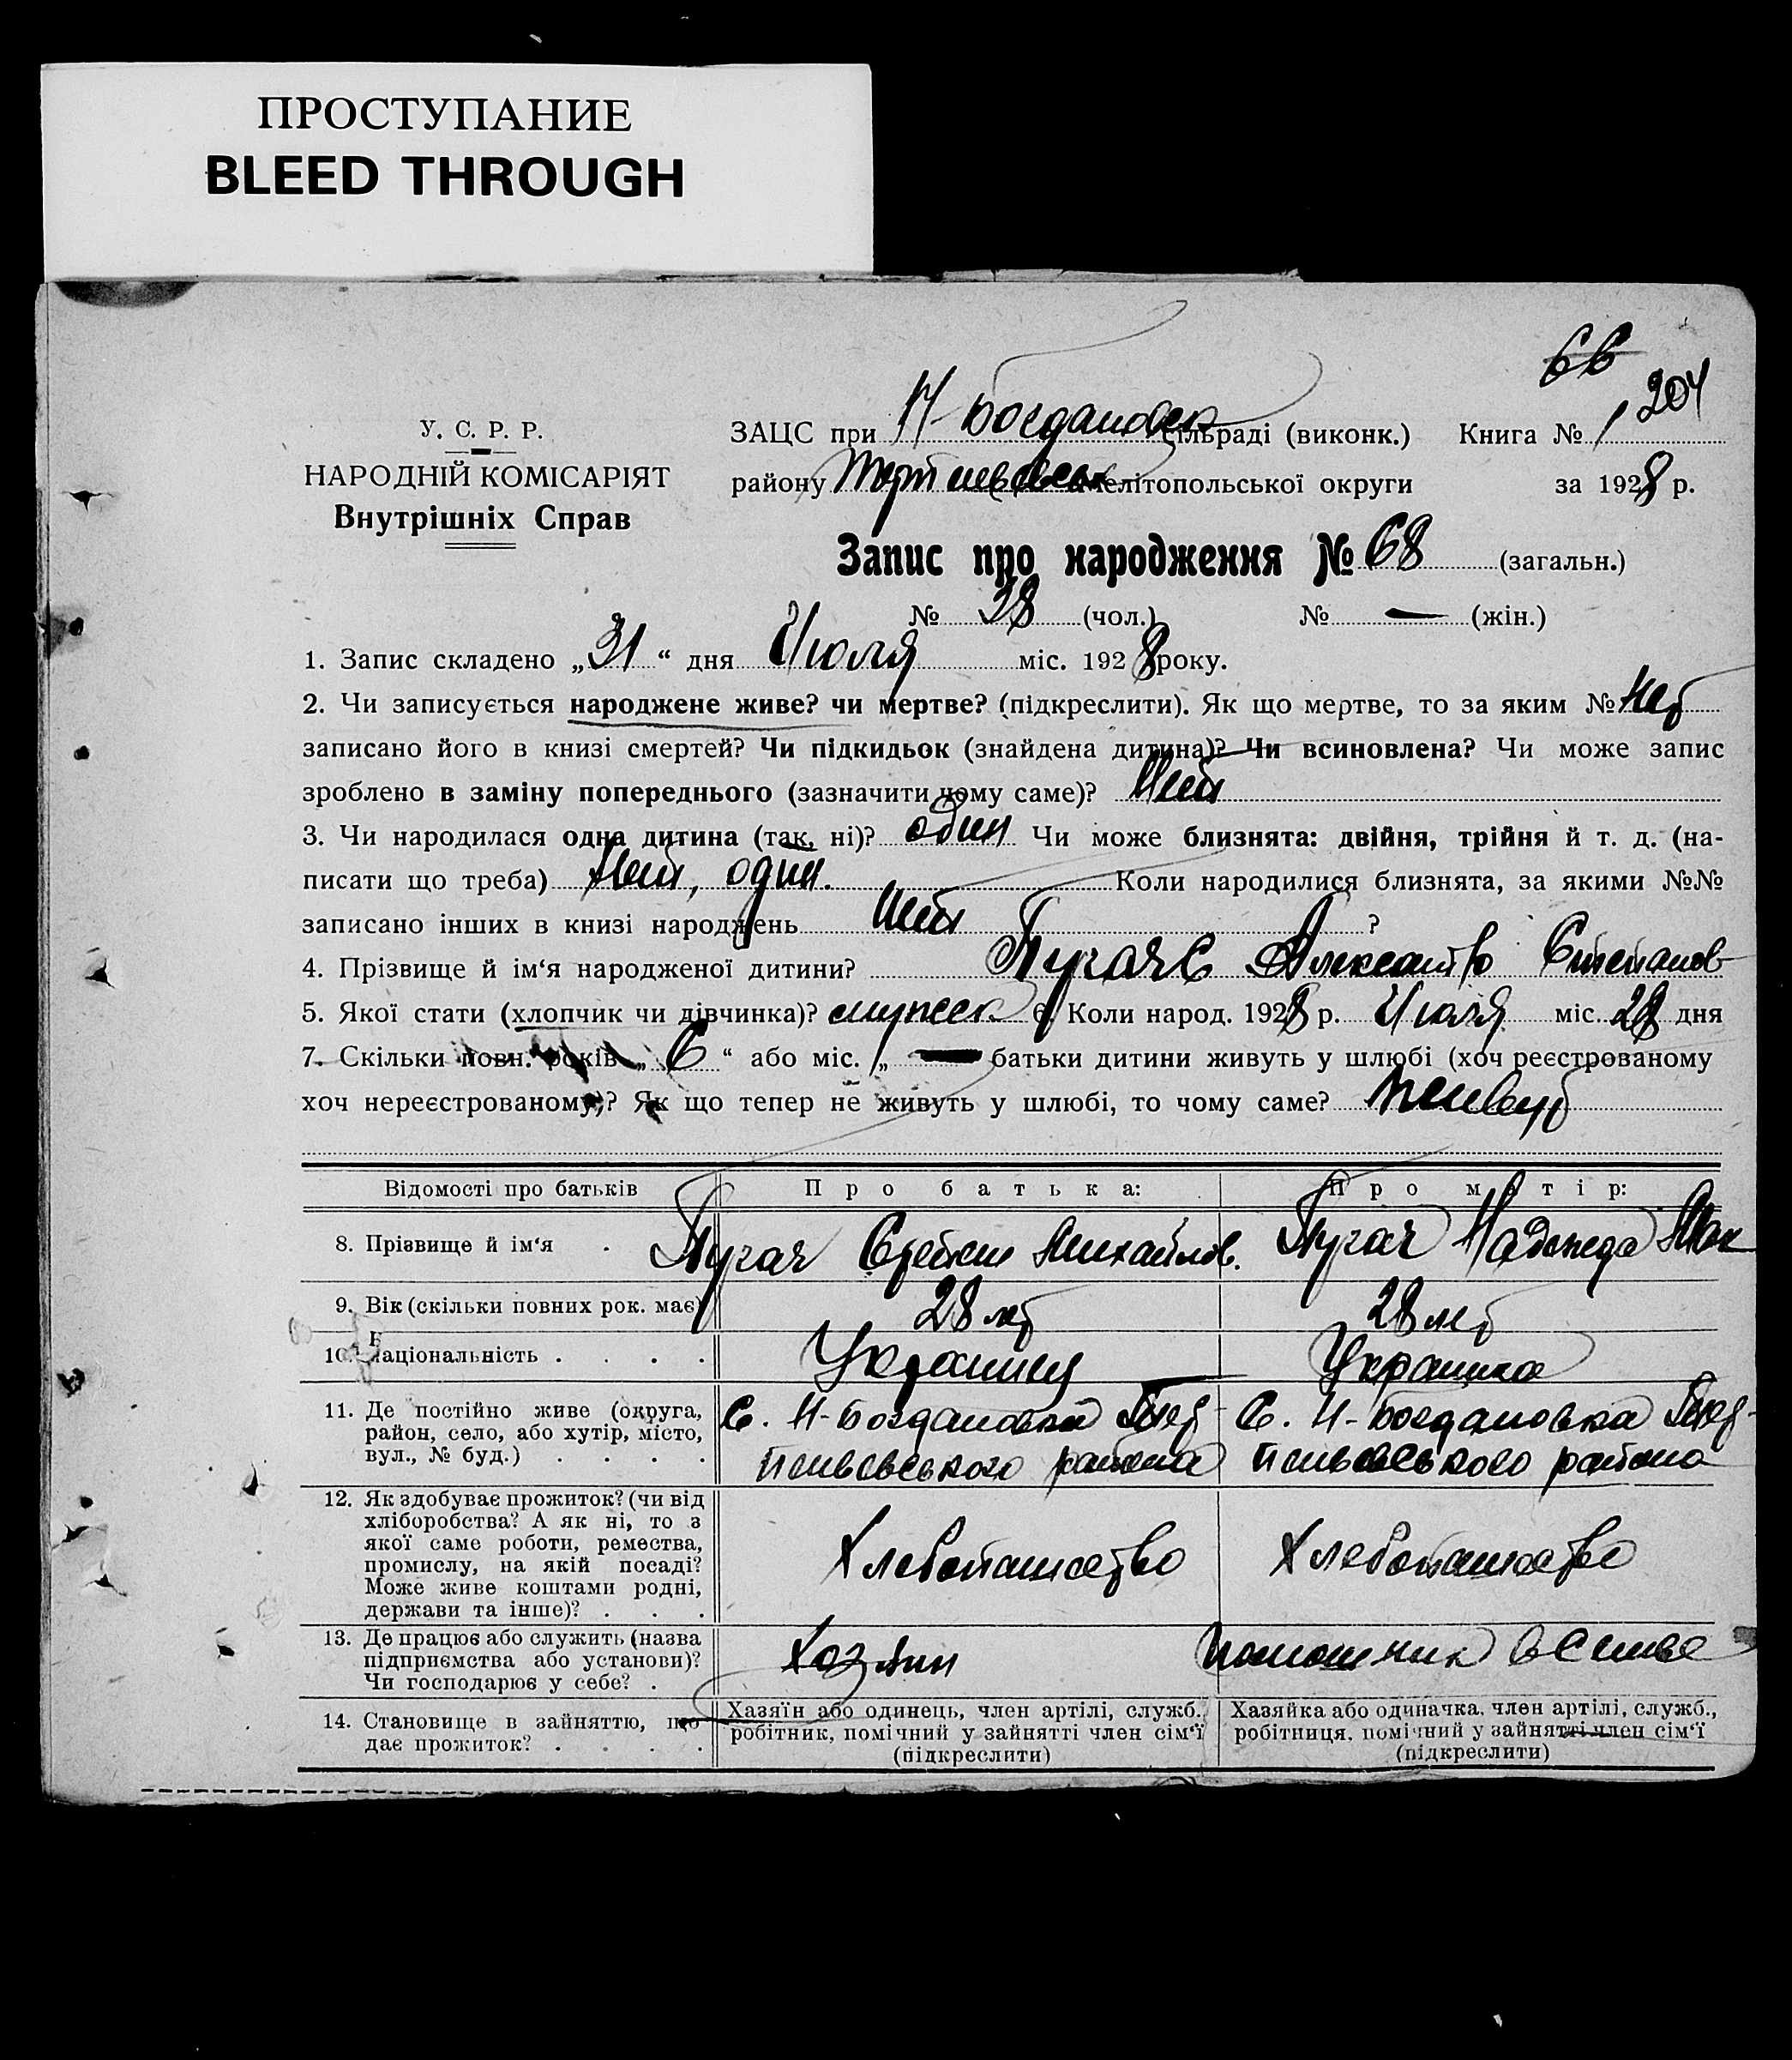 ПРОСТУПАНИЕ
BLEED THROUGH
66
204
У. С. Р. Р.
НАРОДНІЙ КОМІСАРІЯТ
Внутрішніх Справ
ЗАЦС при Н-Богдановск сільраді (виконк.) Книга № 1
району Мелітопольської округи за 1928 р.
Запис про народження № 68 (загальн.)
№ 38 (чол.) № — (жін.)
1. Запис складено „31“ дня Июля міс. 1928 року.
2. Чи записується народжене живе? чи мертве? (підкреслити). Як що мертве, то за яким № Нет
записано його в книзі смертей? Чи підкидьок (знайдена дитина)? Чи всиновлена? Чи може запис
зроблено в заміну попереднього (зазначити чому саме)? Нет
3. Чи народилася одна дитина (так, ні)? один Чи може близнята: двійня, трійня й т. д. (на-
писати що треба) Нет, один. Коли народилися близнята, за якими №№
записано інших в книзі народжень Нет ?
4. Прізвище й ім‘я народженої дитини? Пугач Степанов
5. Якої стати (хлопчик чи дівчинка)? мужск 6. Коли народ. 1928 р. Июля міс. 28 дня
7. Скільки повн. років „6“ або міс. „ — батьки дитини живуть у шлюбі (хоч реєстрованому
хоч нереєстрованому)? Як що тепер не живуть у шлюбі, то чому саме? Живут
Відомості про батьків Про батька: Про матір:
8. Прізвище й ім‘я . Пугач Михайлов. Пугач Надежда
9. Вік (скільки повних рок. має) 28 лет 28 лет
10. Національність . . . . Украинец Украинка
11. Де постійно живе (округа, район, село, або хутір, місто, вул., № буд.) . . . . С. Н-Богдановка района С. Н-Богдановка района
12. Як здобуває прожиток? (чи від хліборобства? А як ні, то з якої саме роботи, ремества, промислу, на якій посаді? Може живе коштами родні, держави та інше)? . . . Хлебопашество Хлебопашество
13. Де працює або служить (назва підприємства або установи)? Чи господарює у себе? . Хозяин помошник в семье
14. Становище в зайняттю, що дає прожиток? . . . . Хазяїн або одинець, член артілі, служб., робітник, помічний у зайнятті член сім‘ї (підкреслити) Хазяйка або одиначка, член артілі, служб., робітниця, помічний у зайнятті член сім‘ї (підкреслити)